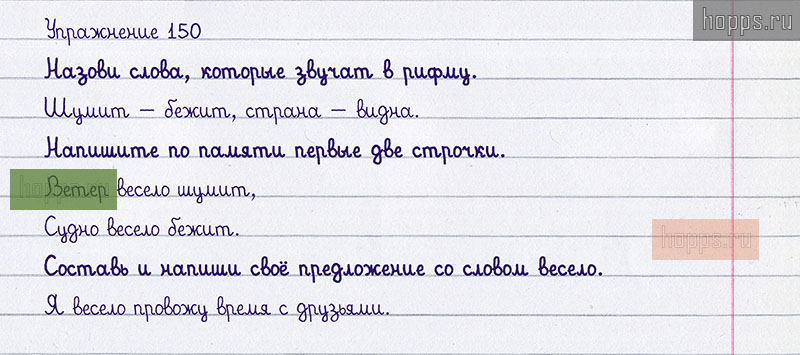 hopps.ru
Упражнение 150
Назови слова, которые звучат в рифму.
Шумит – бежит, страна – видна.
Напишите по памяти первые две строчки.
Ветер весело шумит,
Судно весело бежит.
hopps.ru
Составь и напиши своё предложение со словом весело.
Я весело провожу время с друзьями.